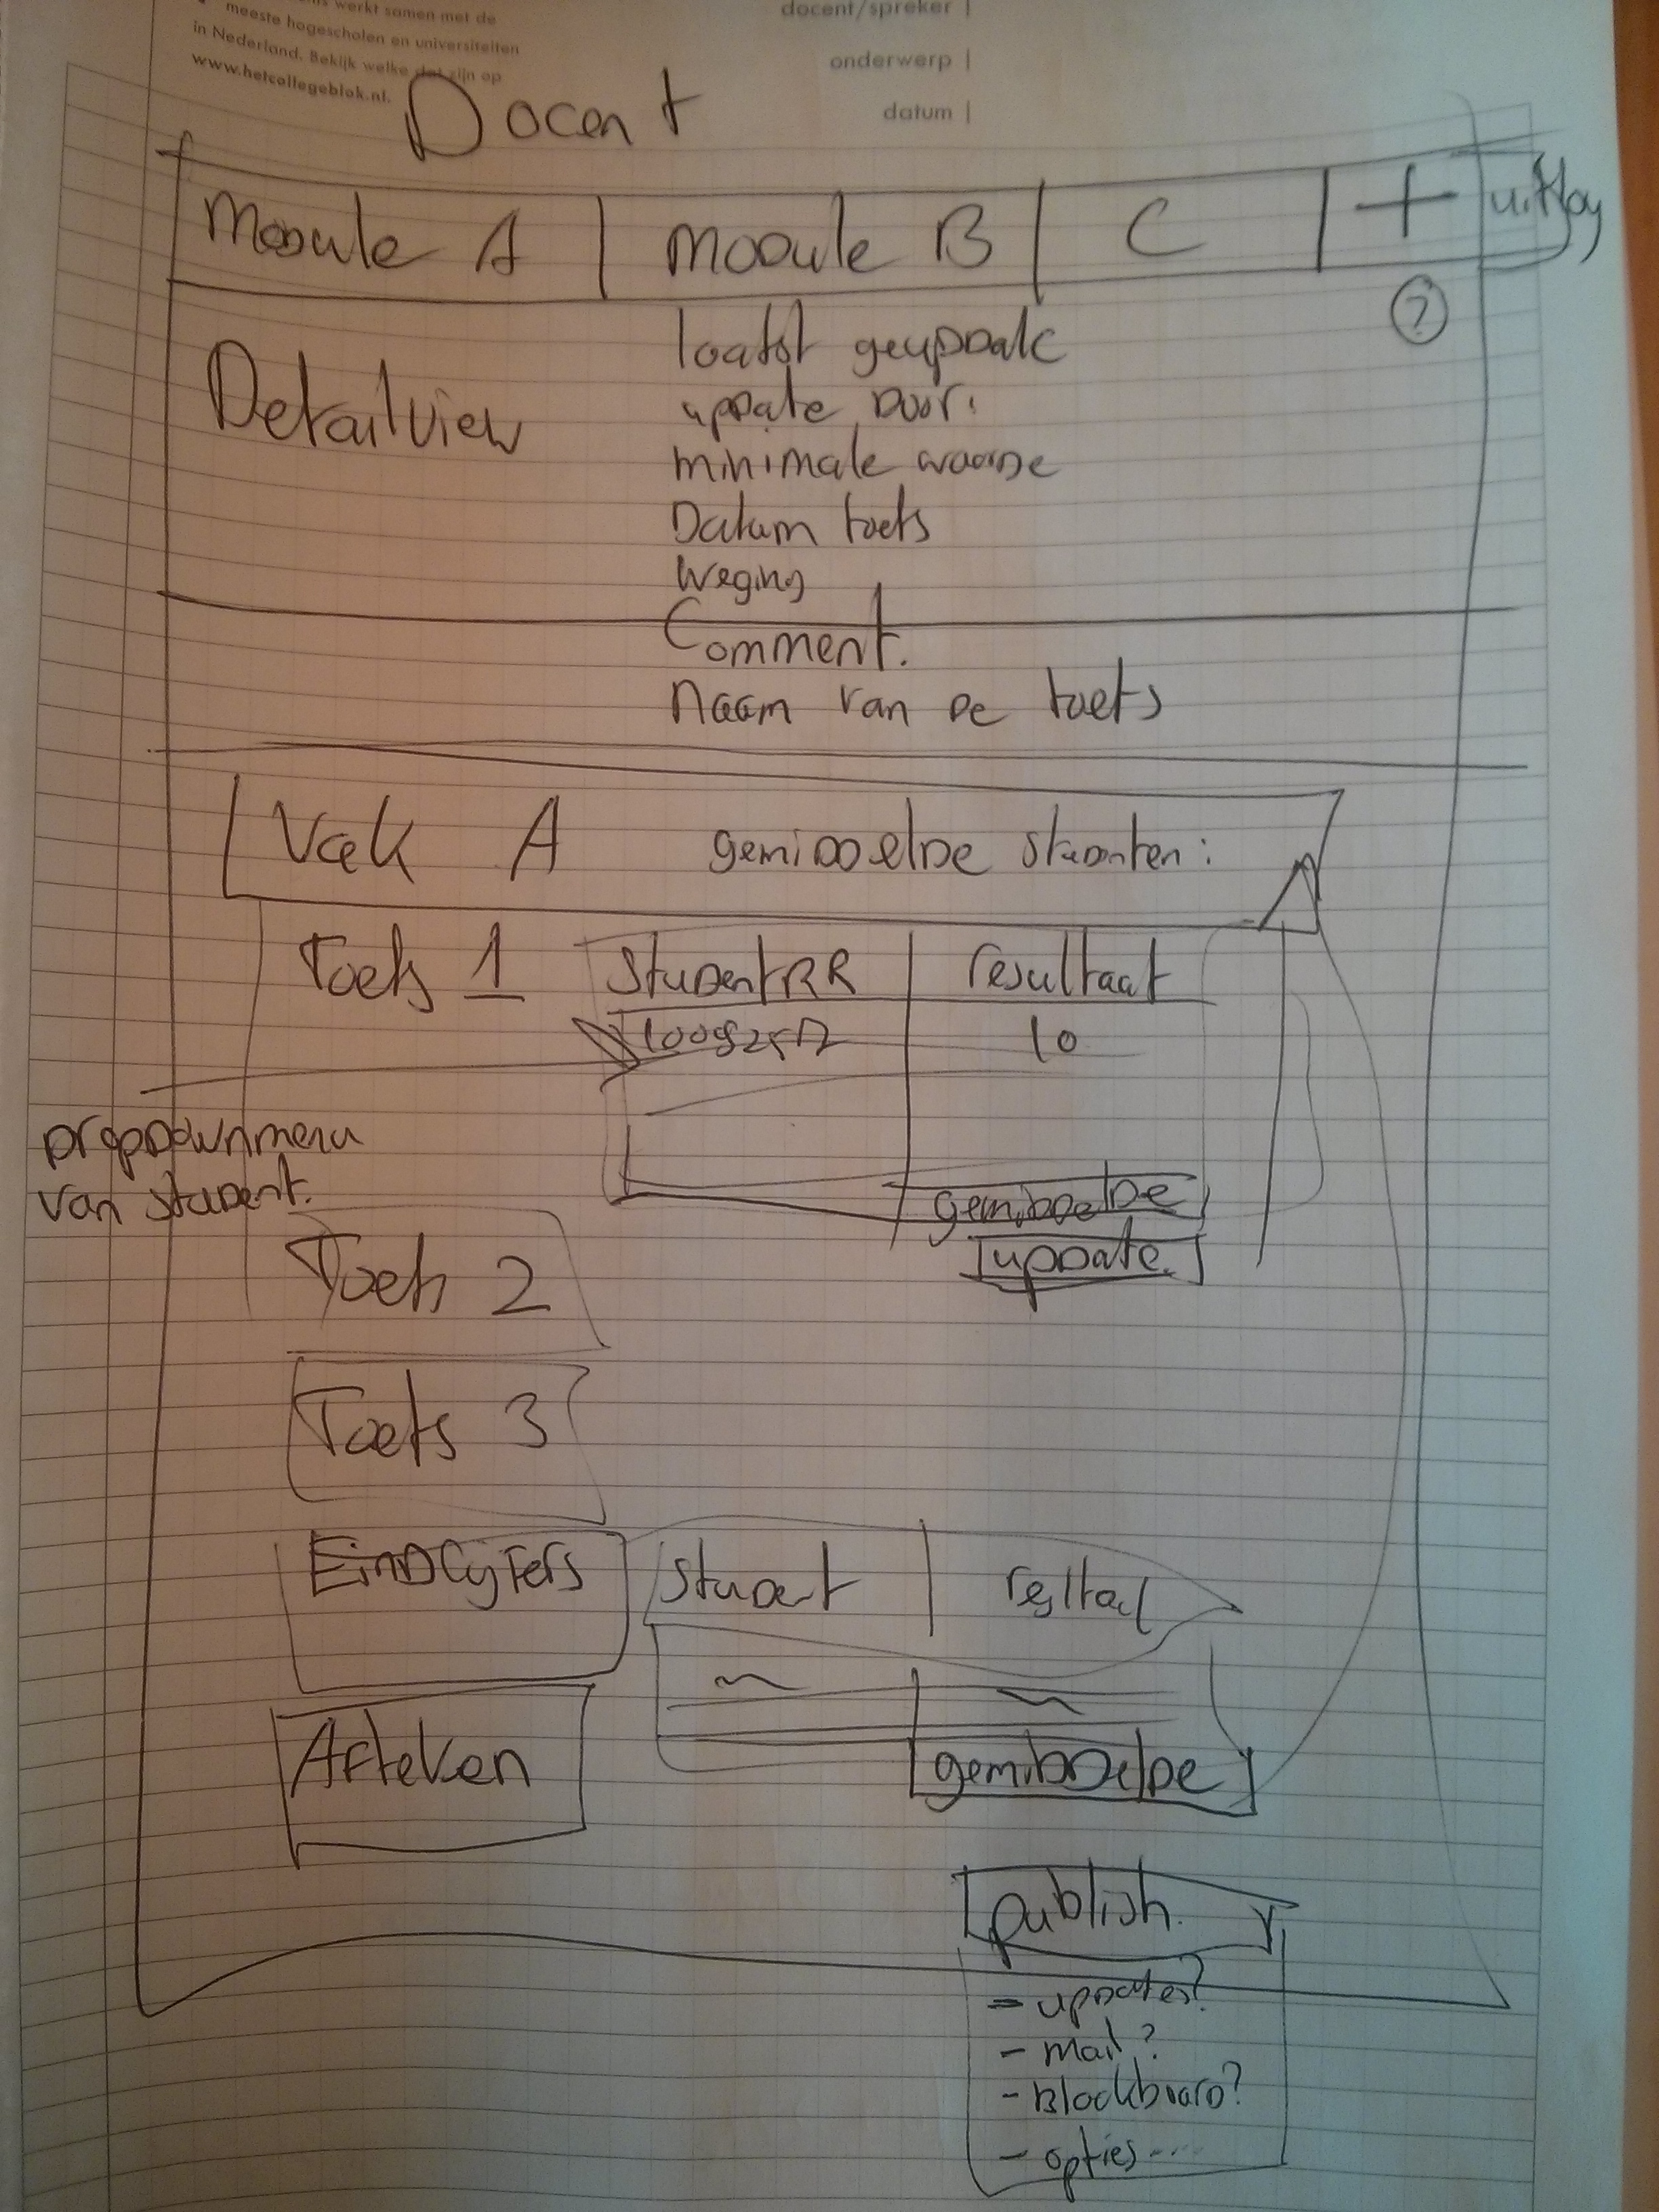 werkt samen met de
meeste hogescholen en universiteiten
in Nederland. Bekijk welke dat zijn op
www.hetcollegeblok.nl.
docent/spreker |
onderwerp |
datum |
Docent
Module A | Module B | C | + uitlog
?
Detailview
laatst geupdate
update door:
minimale waarde
Datum toets
Weging
Comment.
Naam van de toets
Vak A gemiddelde studenten:
Toets 1 Student | resultaat
10
Dropdownmenu
van student.
gemiddelde
update
Toets 2
Toets 3
Eindcijfers Student |
Afteken
gemiddelde
publish.
- updates?
- mail?
- Blackboard?
- opties....